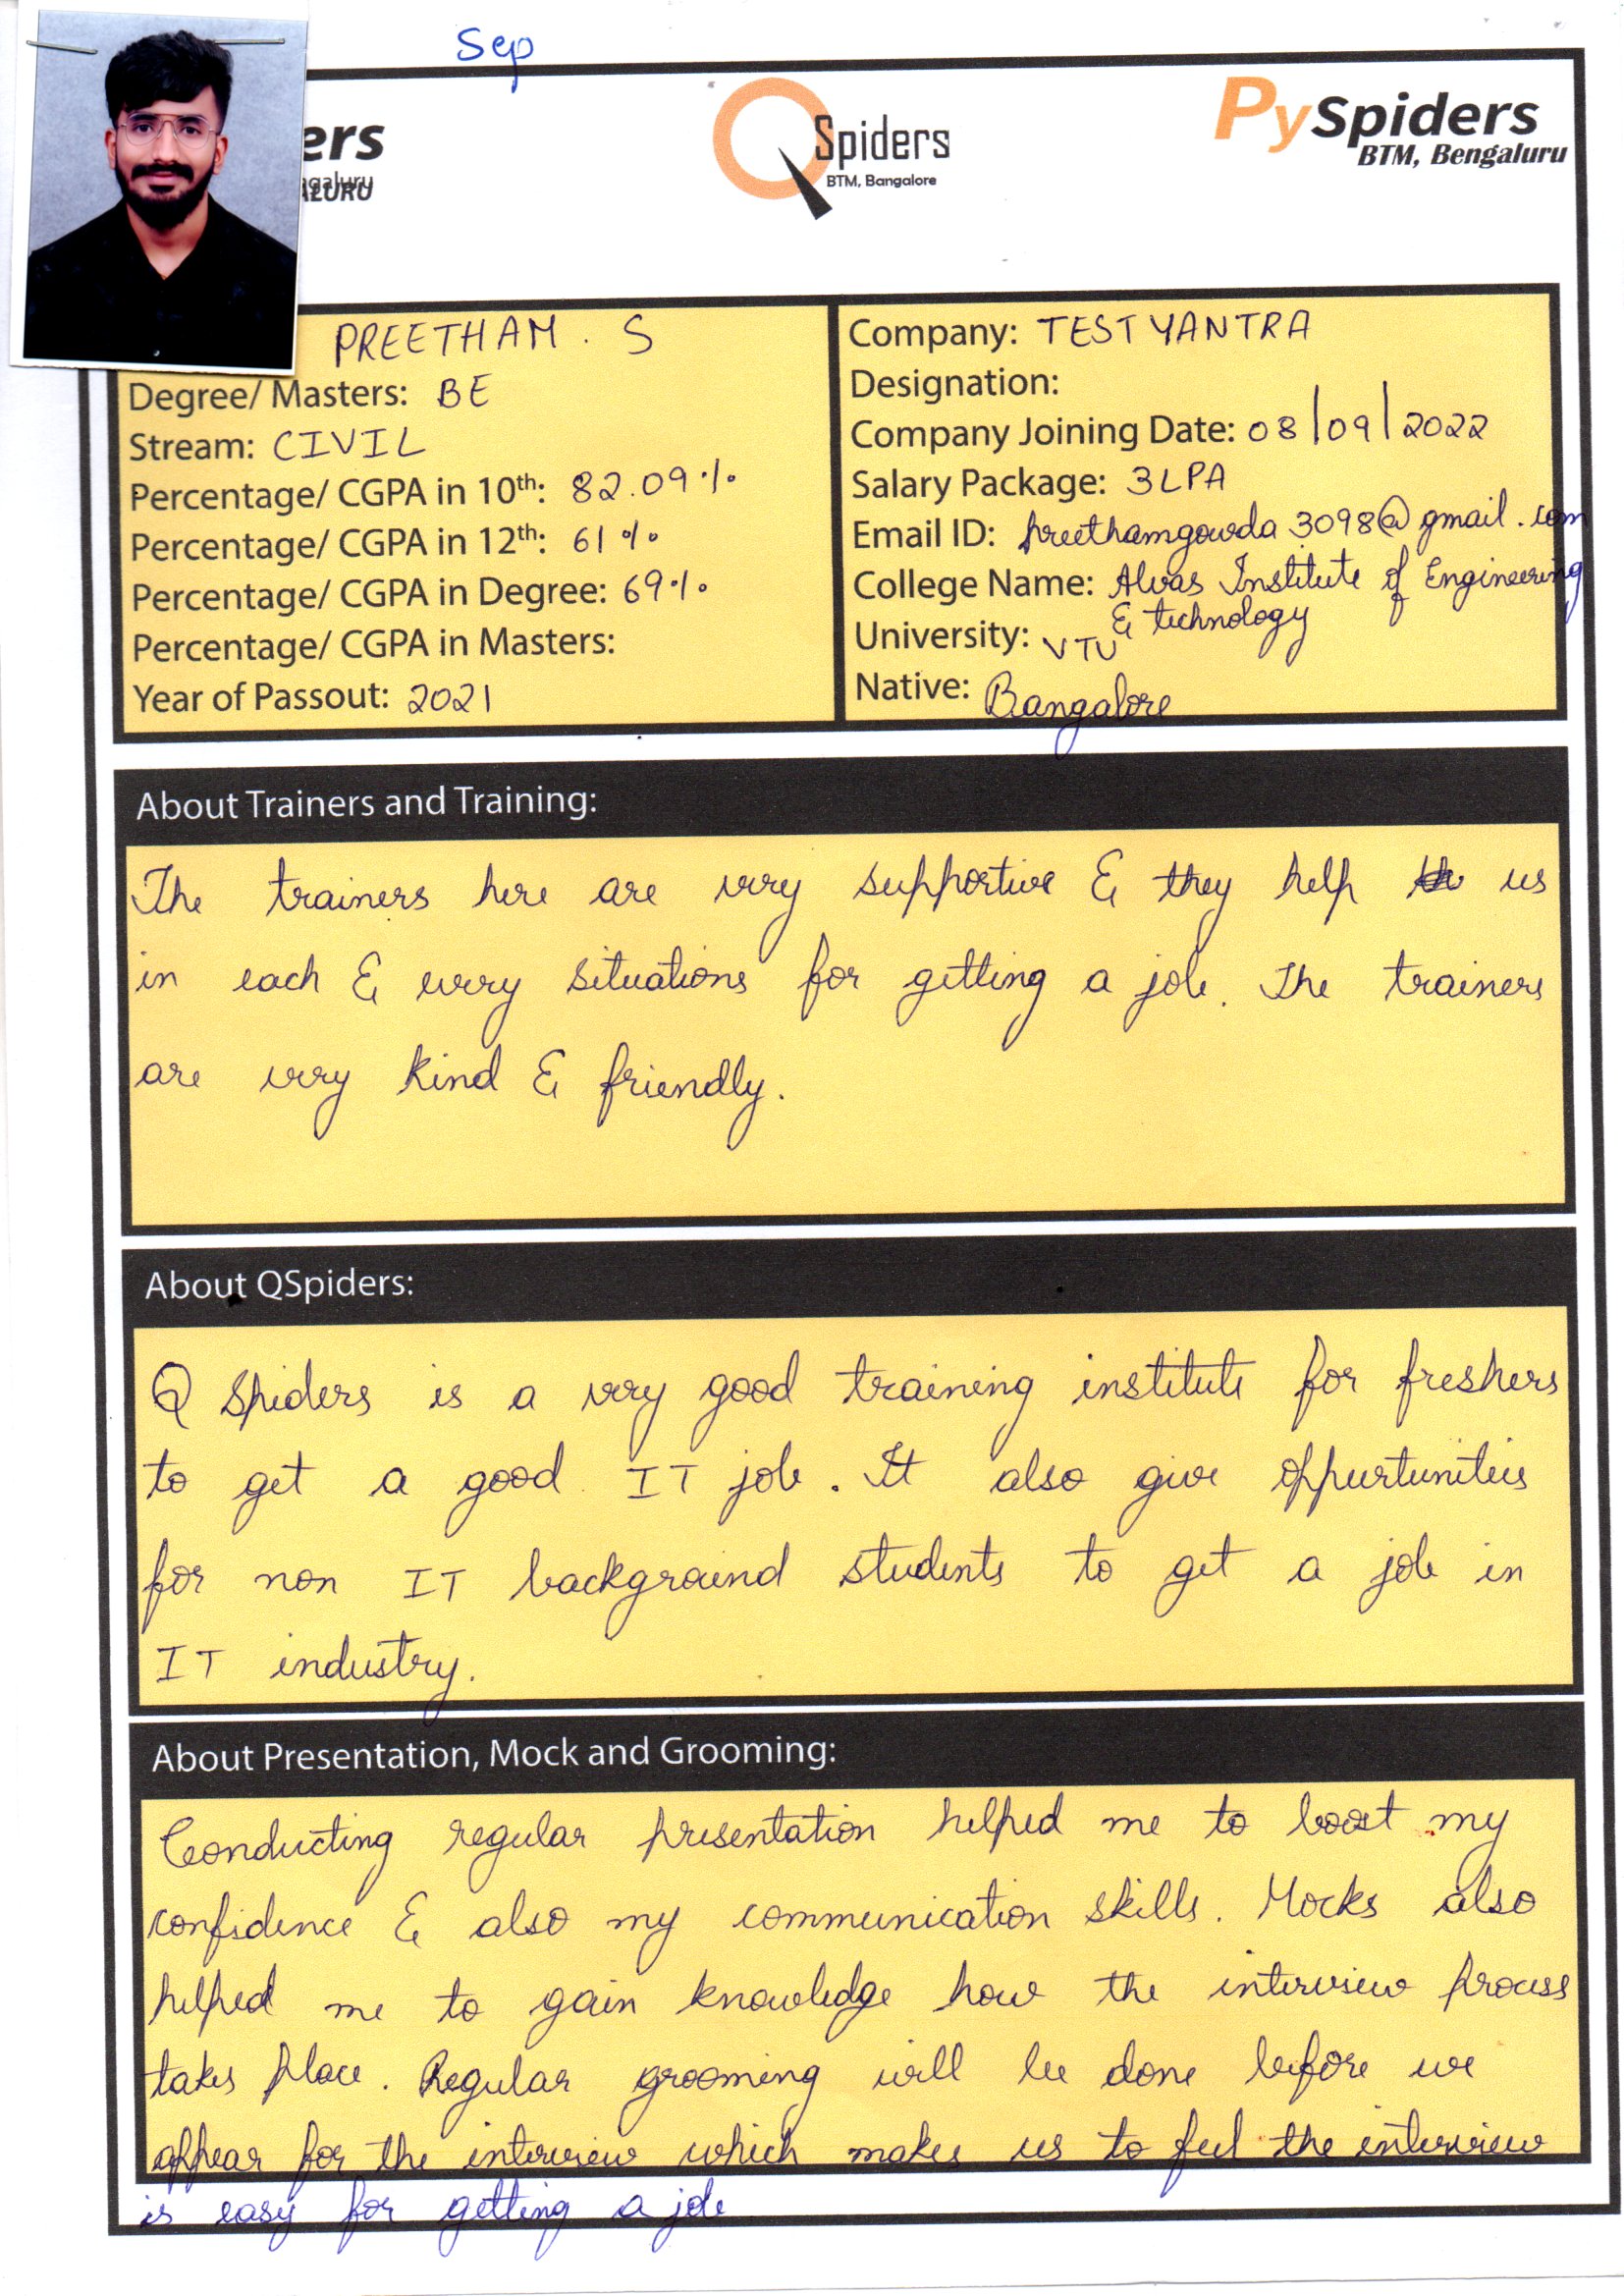 Sep
ers
ngaluru
ALURU
QSpiders
BTM, Bangalore
PySpiders
BTM, Bengaluru
PREETHAM. S
Degree/ Masters: BE
Stream: CIVIL
Percentage/ CGPA in 10th: 82.09%
Percentage/ CGPA in 12th: 61%
Percentage/ CGPA in Degree: 69%
Percentage/ CGPA in Masters:
Year of Passout: 2021
Company: TESTYANTRA
Designation:
Company Joining Date: 08/09/2022
Salary Package: 3LPA
Email ID: preethamgowda3098@gmail.com
College Name: Alvas Institute of Engineering
& technology
University: VTU
Native: Bangalore
About Trainers and Training:
The trainers here are very supportive & they help us
in each & every situations for getting a job. The trainers
are very kind & friendly.
About QSpiders:
Q Spiders is a very good training institute for freshers
to get a good IT job. It also give oppurtunities
for non IT background students to get a job in
IT industry.
About Presentation, Mock and Grooming:
Conducting regular presentation helped me to boost my
confidence & also my communication skills. Mocks also
helped me to gain knowledge how the interview process
takes place. Regular grooming will be done before we
appear for the interview which makes us to feel the interview
is easy for getting a job